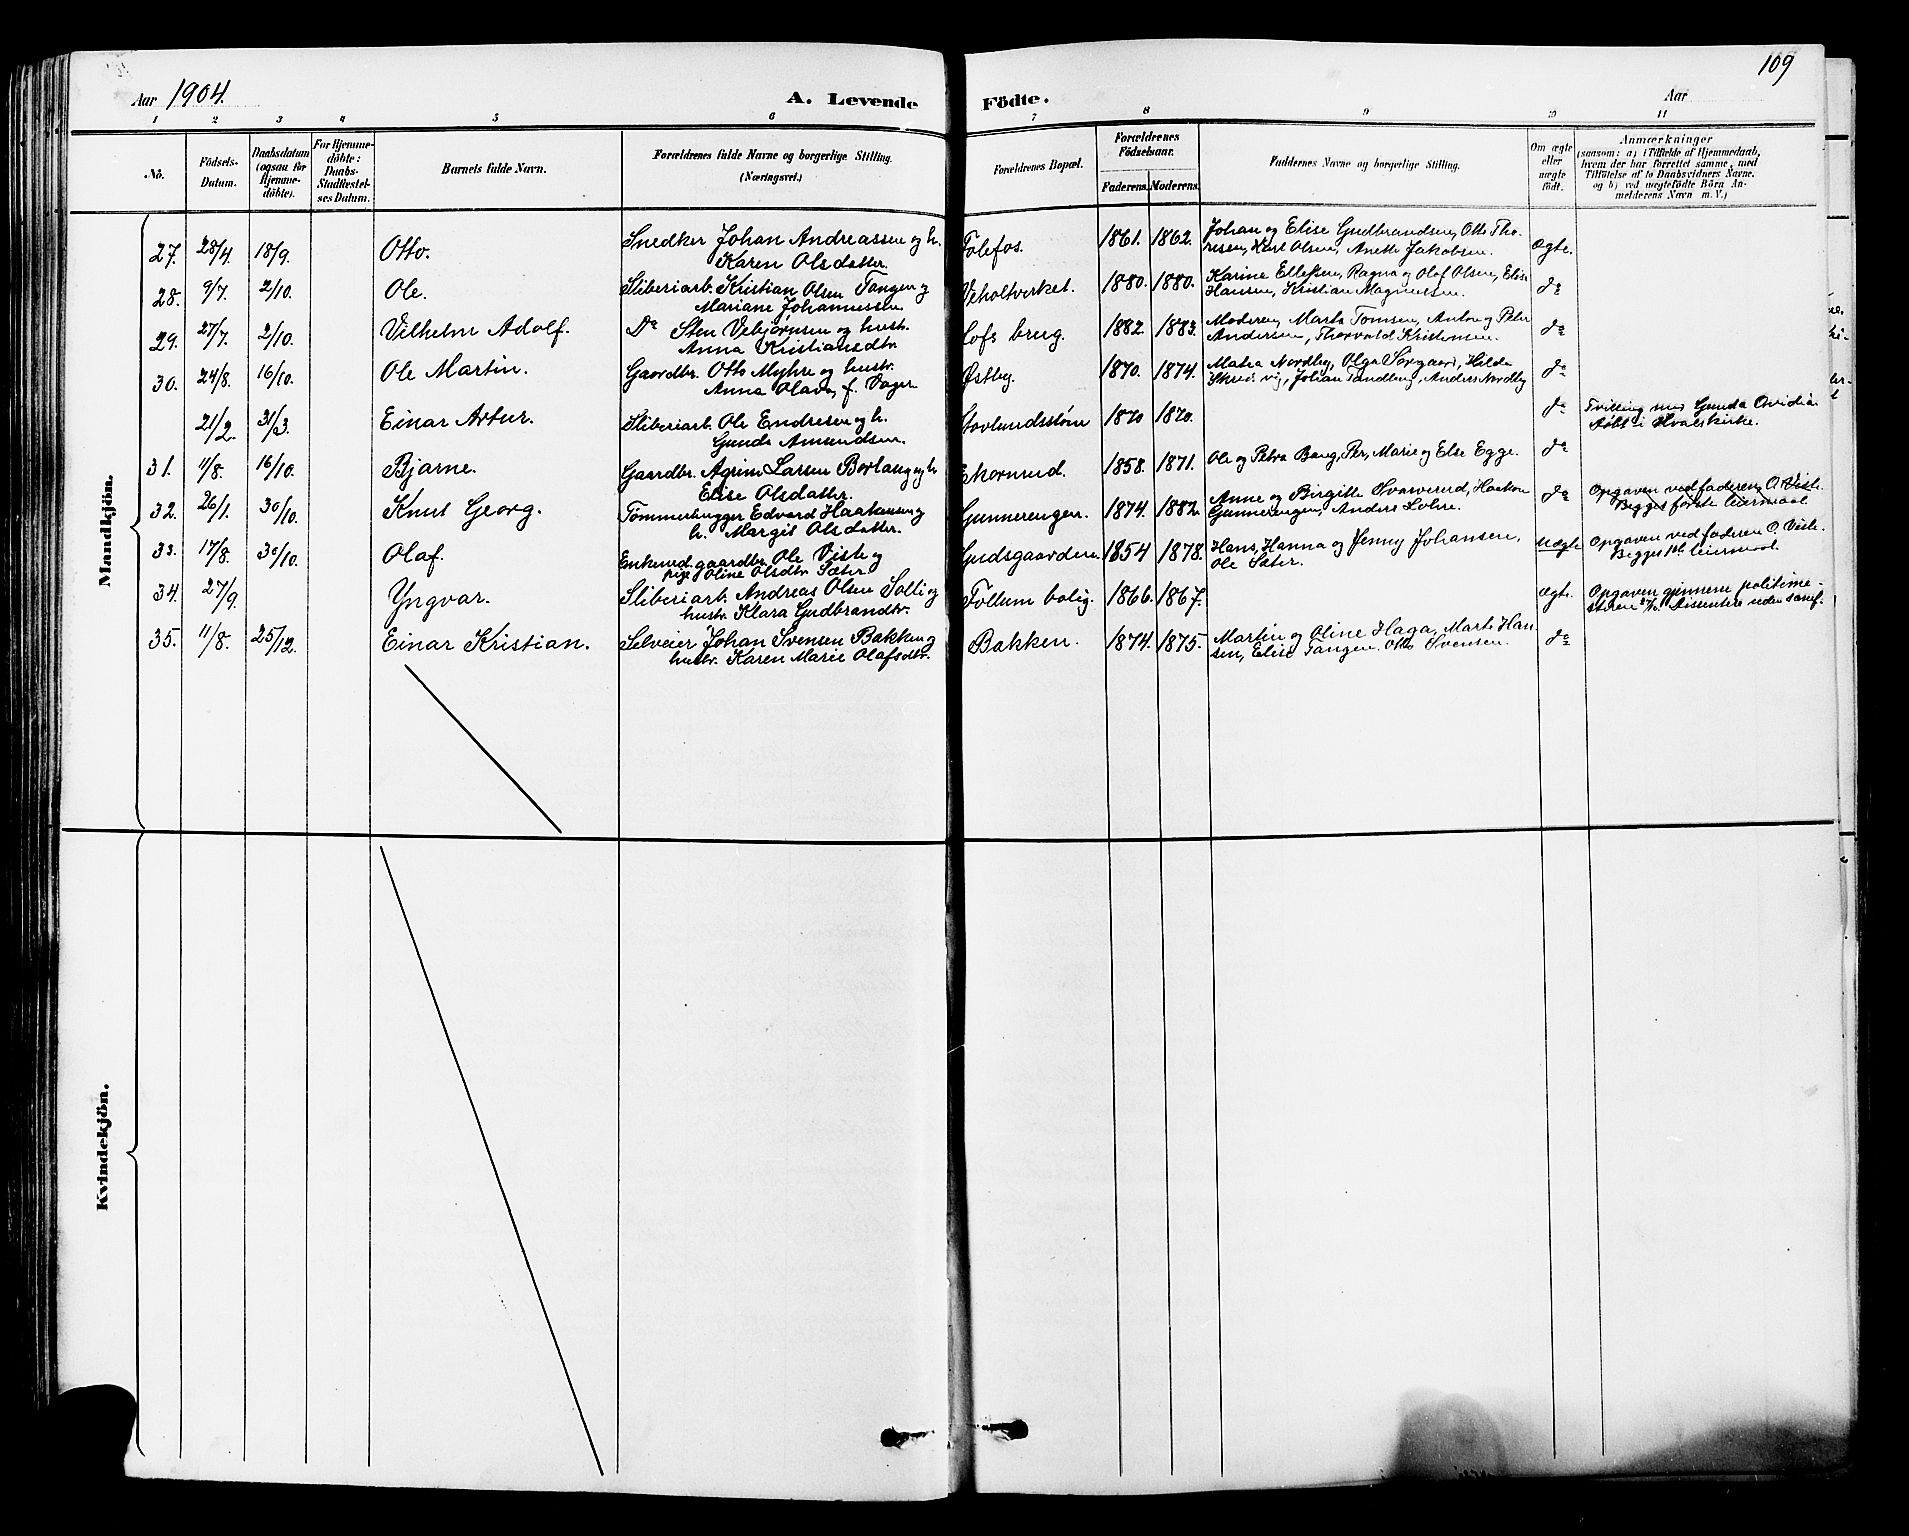 109
Aar 1904.
A. Levende Födte.
Aar
1 2 3 4 5 6 7 8 9 10 11
No.
Födsels-
Datum.
Daabsdatum
(ogsaa for
Hjemme-
döbte).
For Hjemme-
döbte:
Daabs-
Stadfestel-
ses Datum.
Barnets fulde Navn.
Forældrenes fulde Navne og borgerlige Stilling.
(Næringsvei.)
Forældrenes Bopæl.
Forældrenes
Födselsaar.
Faderens. Moderens.
Faddernes Navne og borgerlige Stilling.
Om ægte
eller
uægte
født.
Anmærkninger
(saasom: a) i Tilfælde af Hjemmedaab,
hvem der har forrettet samme, med
Tilföielse af to Daabsvidners Navne,
og b) ved uægtefödte Börn An-
melderens Navn m. V.)
Mandkjön.
27. 28/4 18/9. Otto. Snedker Johan Andreassen og h.
Karen Olsdatter. Folefos. 1861. 1862. Johan og Elise Gudbrandsen, Otto Tho-
resen, Karl Olsen, Anette Jakobsen. ægte.
28. 9/7. 2/10. Ole. Sliberiarb. Kristian Olsen Tangen og
Mariane Johannessen Veholtverket. 1880. 1880. Karine Ellefsen, Ragna og Olaf Olsen, Elise
Hansen, Kristian Magnussen. do
29. 27/7. 2/10. Vilhelm Adolf. Do Sten Vebjørnsen og hustr.
Anna Kristiansdtr. Hofs brug. 1882. 1883. Moderen, Marta Tomsen, Anton og Peter
Andersen, Thorvald Kristensen. do
30. 24/8. 16/10. Ole Martin. Gaardbr. Otto Myhre og hustr.
Anna Olava f. Vager Østby. 1870. 1874. Matea Nordby, Olga Sorgaard, Hilda
Johan Tandberg, Anders Nordby do
21/2. 31/3. Einar Artur. Sliberiarb. Ole Endresen og h.
Gunda Amundsen. 1870 1870. do Tvilling med Gunda Ovidia
døbt i Hvalskirke.
31. 11/8. 16/10. Bjarne. Gaardbr. Larsen Borlaug og h
Elise Olsdatter. Ekornrud. 1858. 1871. Ole og Petra Bang, Per, Marie og Else Egge. do
32. 26/1. 30/10. Knut Georg. Tømmerhugger Edvard Haakensen og
h. Margit Olsdatter. Gunnerengen. 1874. 1882. Anne og Birgitte Svarverud, Haakon
Gunnerengen, Anders Lohre. do Opgaven ved faderen O. Viste.
Begges første leiermaal
33. 17/8. 30/10. Olaf. Enkemd. gaardbr. Ole Viste og
pige Oline Olsdtr. Sæter. Gudsgaarden. 1854 1878. Hans, Hanna og Jenny Johansen,
Ole Sæter. Uægte Opgaven ved faderen O. Viste.
Begges 1ste leiermaal.
34. 27/9. Yngvar. Sliberiarb. Andreas Olsen Solli og
hustr. Klara Gudbrandtr. Follum bolig. 1866. 1867. ægte. Opgaven gjennem politime-
steren
35. 11/8. 25/12. Einar Kristian. Selveier Johan Svensen Bakken og
hustr. Karen Marie Olafsdtr. Bakken. 1874. 1875. Martin og Oline Haga, Marte Han-
sen, Elise Tangen. Otto Svensen. do
Kvindekjön.